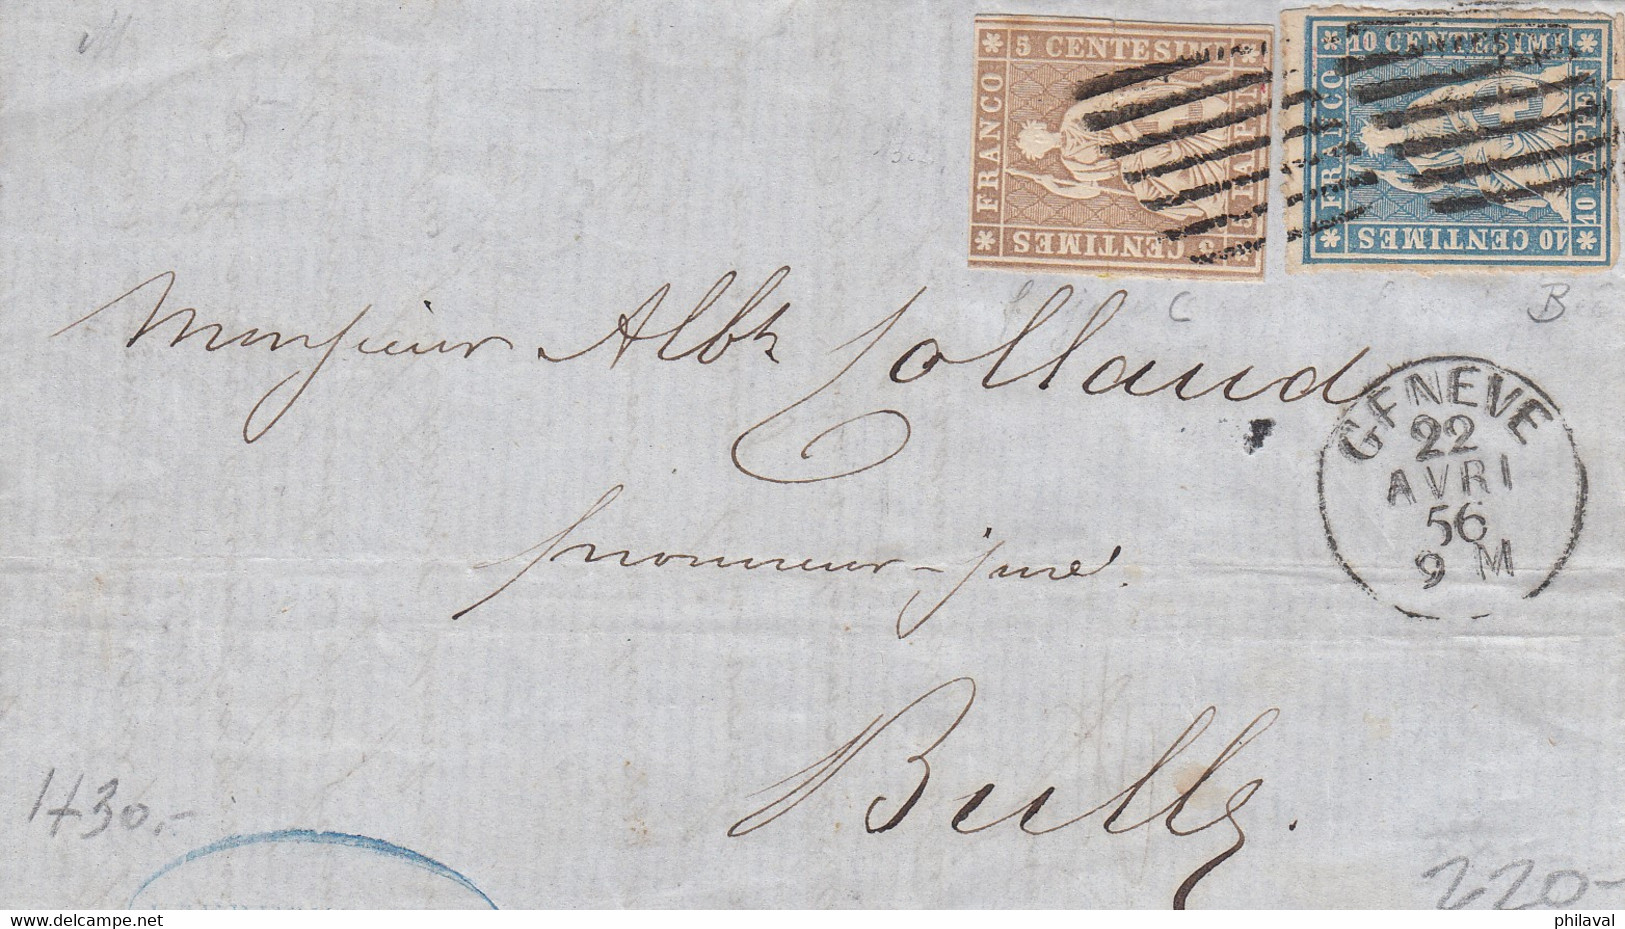 5 CENTESIMI
FRANCO
5 CENTIMES
10 CENTESIMI
FRANCO
10 RAPPEN
10 CENTIMES
C
B
Monsieur Albt Collaud
procureur-juré.
GENEVE
22
AVRI
56
9 M
Bulle.
1430.-
220-
delcampe.net
philaval